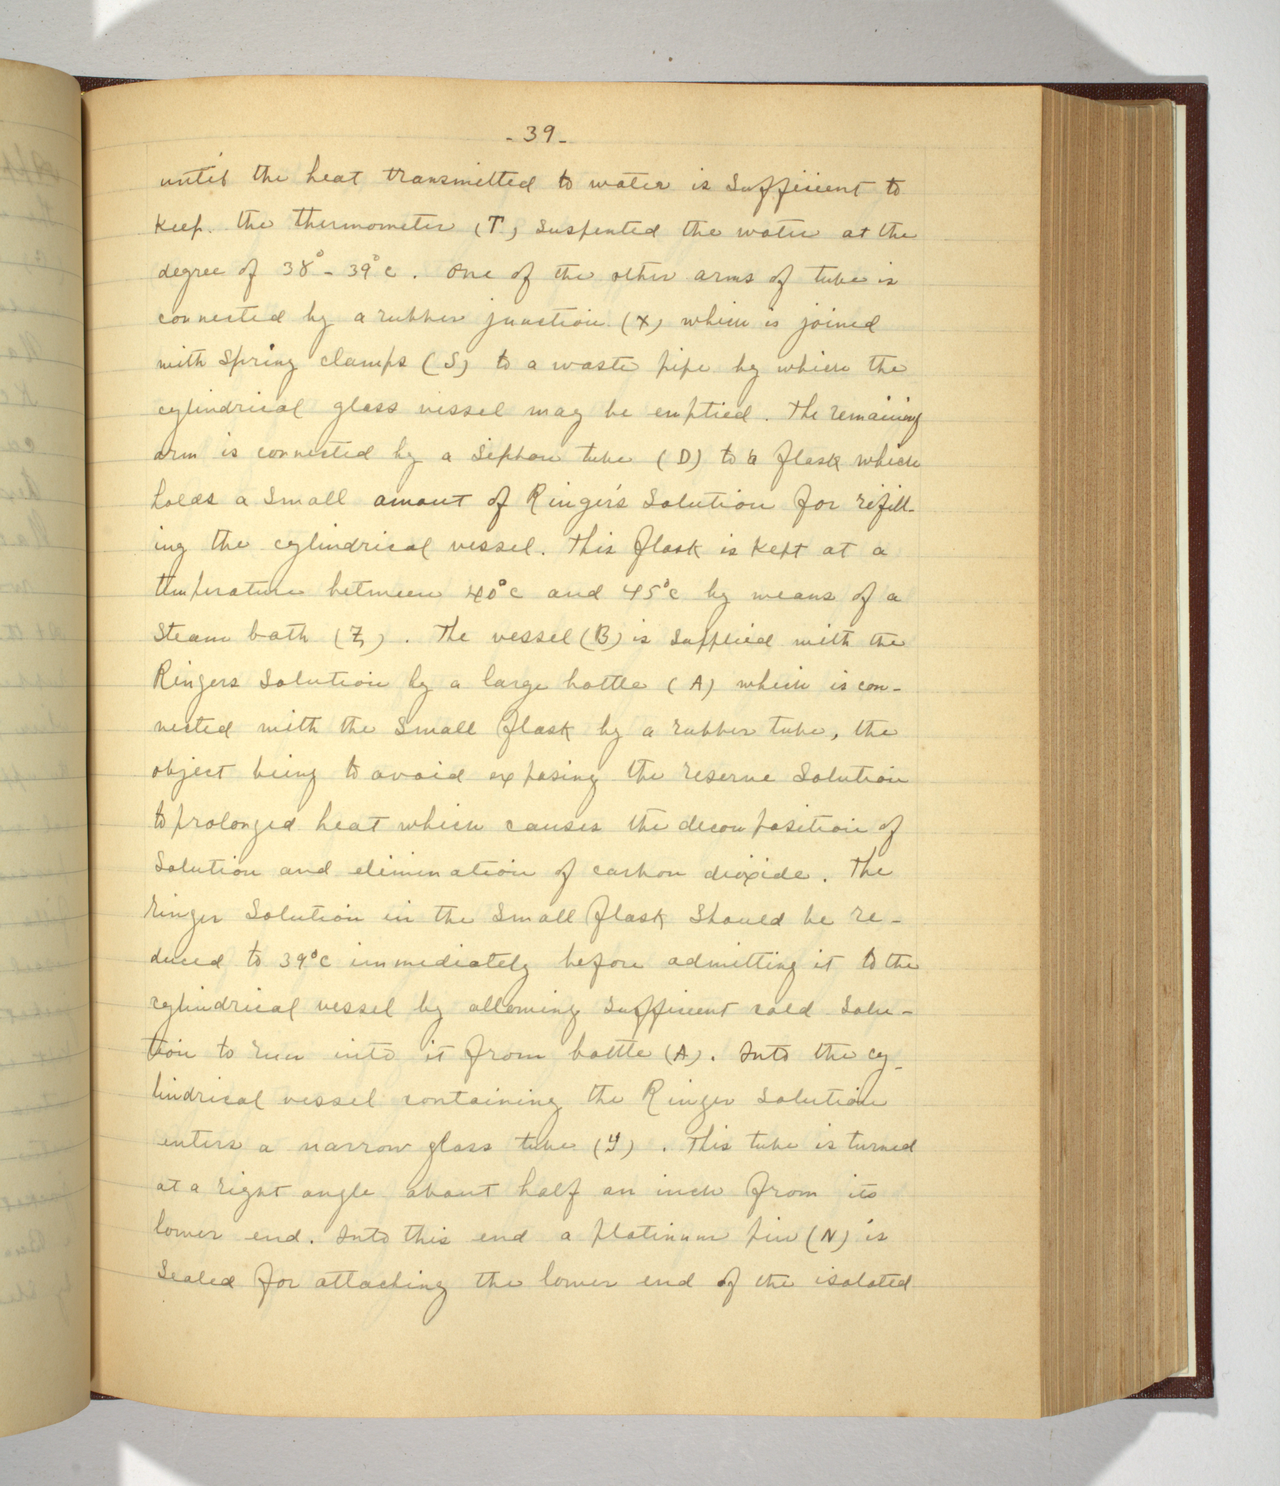 - 39 -
until the heat transmitted to water is sufficient to
keep. the thermometer (T) suspented the water at the
degree of 38° - 39°c. One of the other arms of tube is
connected by a rubber junction (X) which is joined
with spring clamps (S) to a waste pipe by which the
cylindrical glass vessel may be emptied. The remaining
arm is connected by a siphon tube (D) to a flask which
holds a small amount of Ringer's solution for refill-
ing the cylindrical vessel. This flask is kept at a
temperature between 40°c and 45°c by means of a
steam bath (Z). The vessel (B) is supplied with the
Ringers solution by a large bottle (A) which is con-
nected with the small flask by a rubber tube, the
object being to avoid exposing the reserve solution
to prolonged heat which causes the decomposition of
solution and elimination of carbon dioxide. The
ringer solution in the small flask should be re-
duced to 39°c immediately before admitting it to the
cylindrical vessel by allowing sufficient cold solu-
tion to run into it from bottle (A). Into the cy-
lindrical vessel containing the Ringer solution
enters a narrow glass tube (Y). This tube is turned
at a right angle about half an inch from its
lower end. Into this end a platinum pin (N) is
sealed for attaching the lower end of the isolated